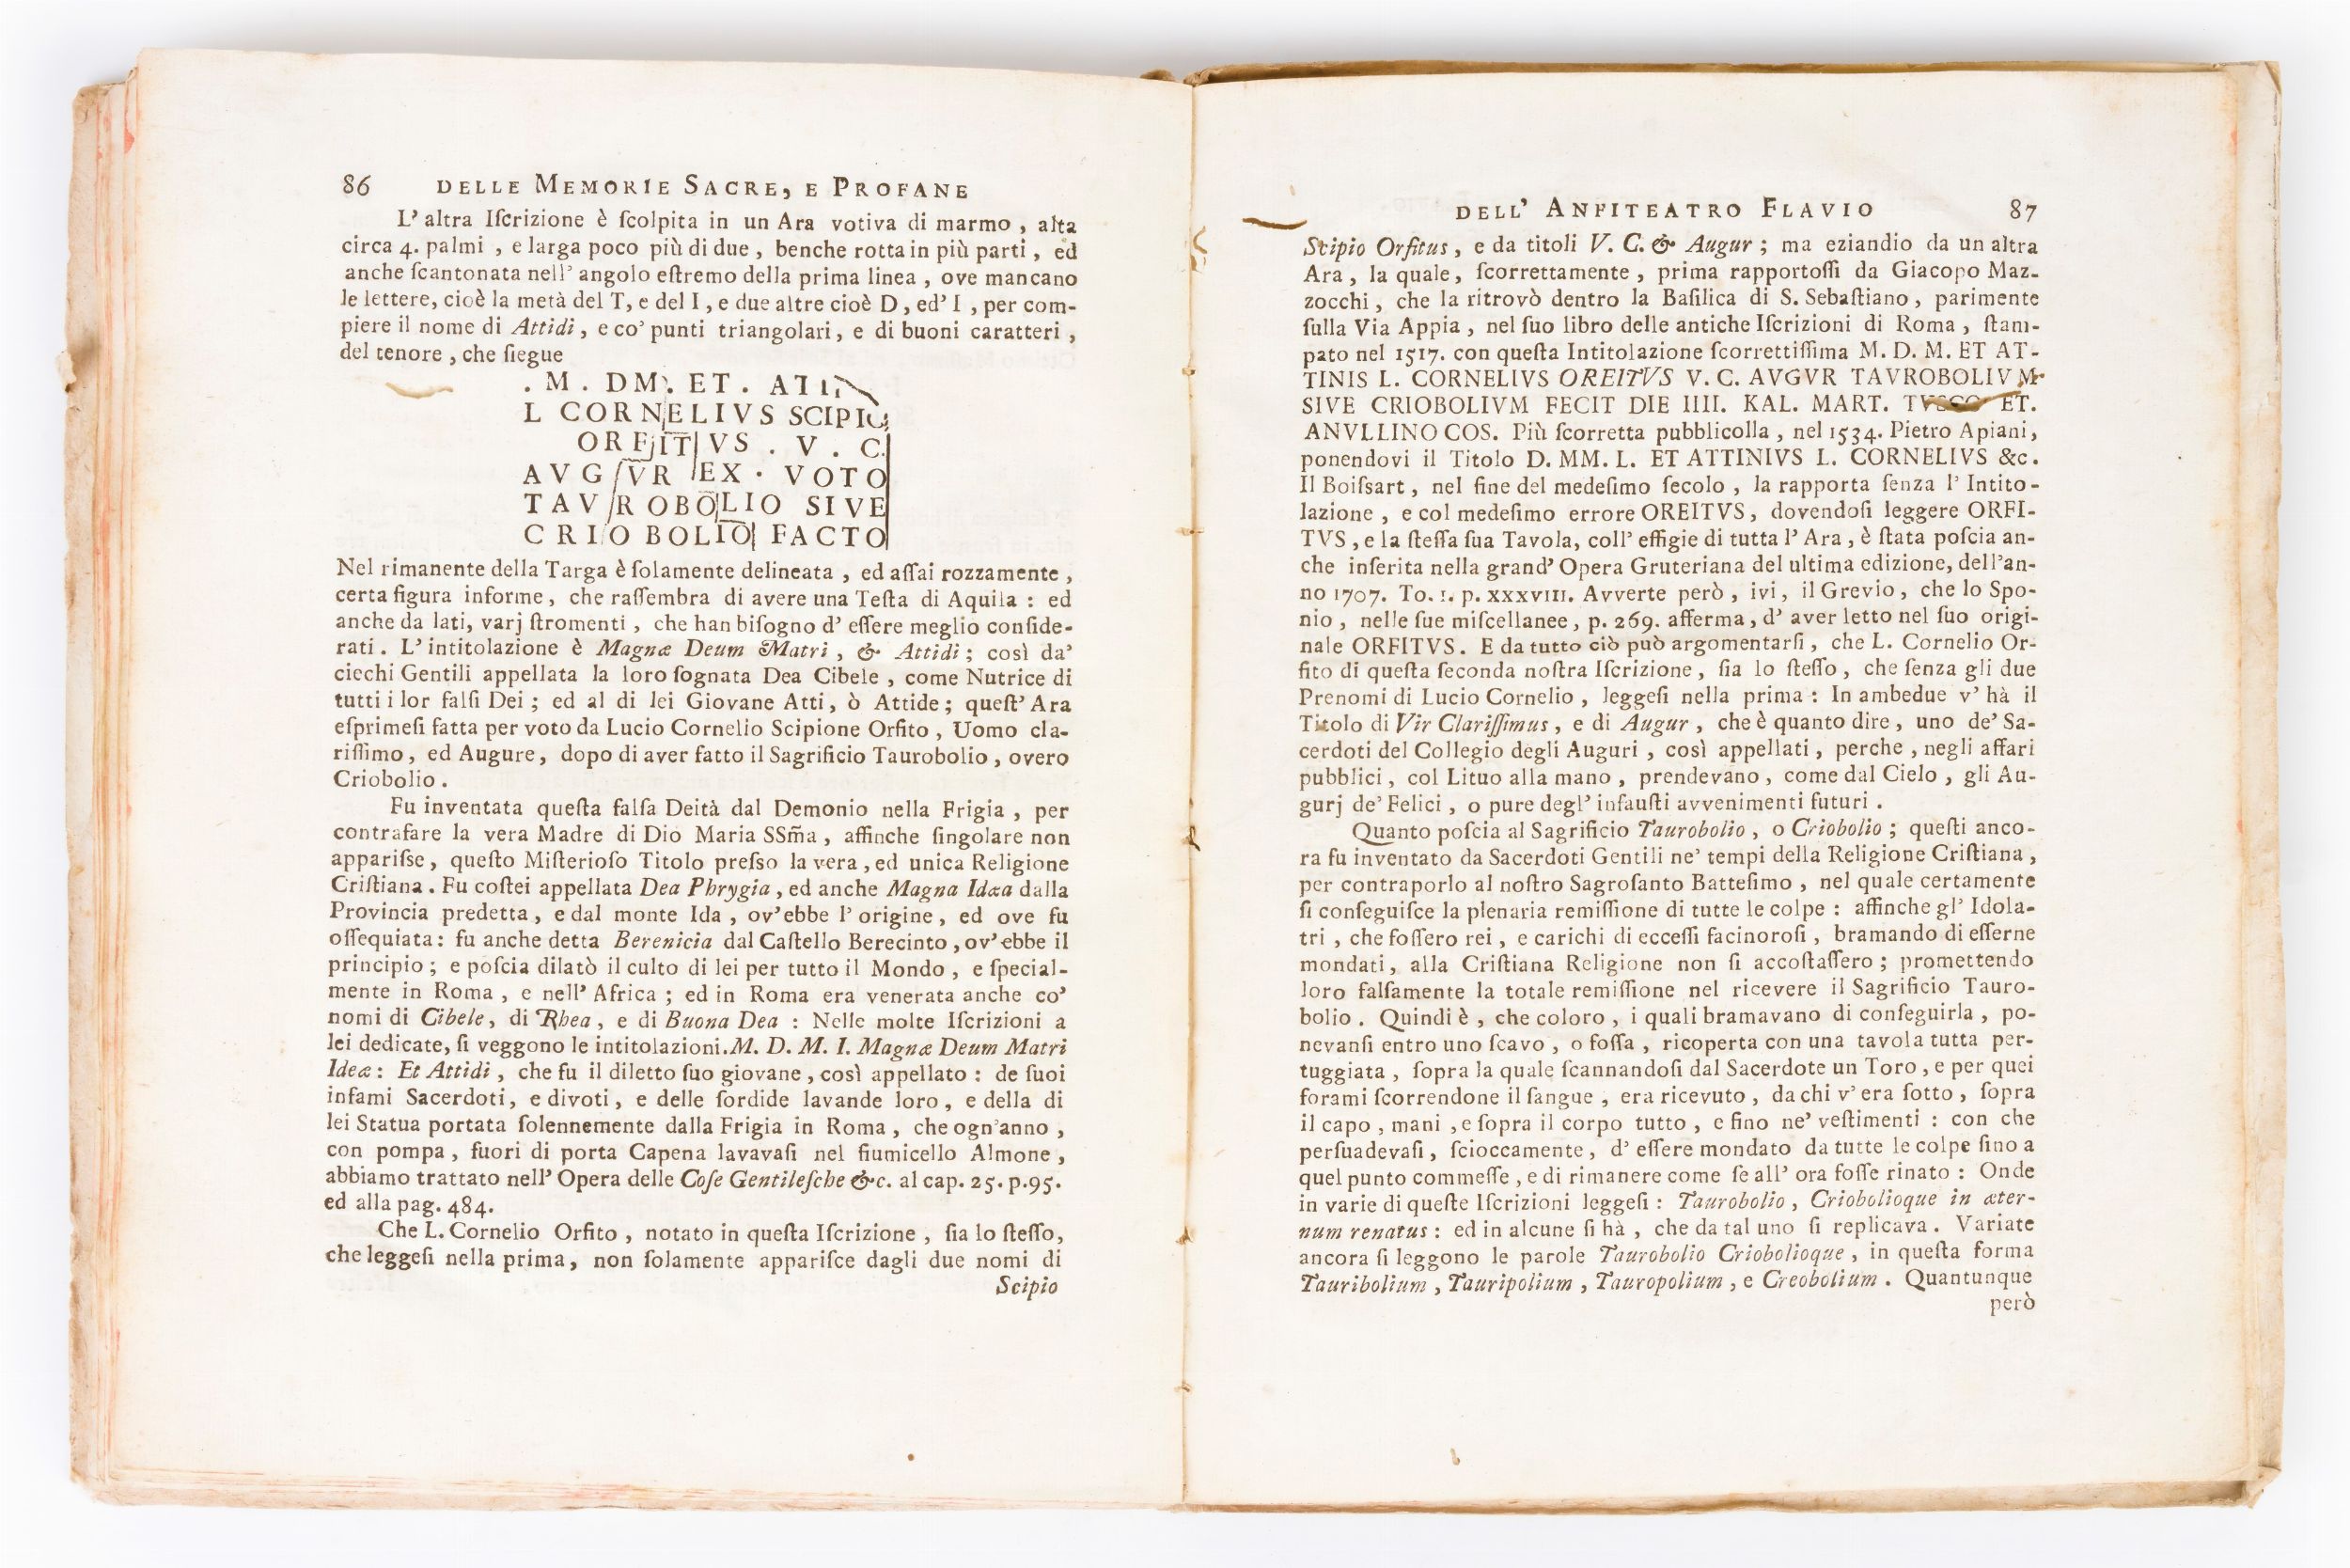 86 DELLE MEMORIE SACRE, E PROFANE
L' altra Iſcrizione è ſcolpita in un Ara votiva di marmo , alta
circa 4. palmi , e larga poco più di due , benche rotta in più parti , ed
anche ſcantonata nell' angolo eſtremo della prima linea , ove mancano
le lettere, cioè la metà del T, e del I , e due altre cioè D , ed' I , per com-
piere il nome di Attidi , e co' punti triangolari , e di buoni caratteri ,
del tenore , che ſiegue
. M . DM . ET . ATI
L CORNELIVS SCIPIO
ORFITVS . V . C
AVGVR EX · VOTO
TAVROBOLIO SIVE
CRIOBOLIO FACTO
Nel rimanente della Targa è ſolamente delineata , ed aſſai rozzamente ,
certa figura informe , che raſſembra di avere una Teſta di Aquila : ed
anche da lati, varj ſtromenti , che han biſogno d' eſſere meglio conſide-
rati . L' intitolazione è Magnæ Deum Matri , & Attidi ; così da'
ciechi Gentili appellata la loro ſognata Dea Cibele , come Nutrice di
tutti i lor falſi Dei ; ed al di lei Giovane Atti, ò Attide ; queſt' Ara
eſprimeſi fatta per voto da Lucio Cornelio Scipione Orfito , Uomo cla-
riſſimo, ed Augure, dopo di aver fatto il Sagrificio Taurobolio , overo
Criobolio .
Fu inventata queſta falſa Deità dal Demonio nella Frigia , per
contrafare la vera Madre di Dio Maria SSm̃a , affinche ſingolare non
appariſse, queſto Miſterioſo Titolo preſso la vera , ed unica Religione
Criſtiana . Fu coſtei appellata Dea Phrygia , ed anche Magna Idæa dalla
Provincia predetta , e dal monte Ida , ov'ebbe l' origine , ed ove fu
oſſequiata : fu anche detta Berenicia dal Caſtello Berecinto , ov'ebbe il
principio ; e poſcia dilatò il culto di lei per tutto il Mondo , e ſpecial-
mente in Roma , e nell' Africa ; ed in Roma era venerata anche co'
nomi di Cibele, di Rhea , e di Buona Dea : Nelle molte Iſcrizioni a
lei dedicate, ſi veggono le intitolazioni. M. D. M. I. Magnæ Deum Matri
Ideæ : Et Attidi , che fu il diletto ſuo giovane , così appellato : de ſuoi
infami Sacerdoti, e divoti , e delle ſordide lavande loro , e della di
lei Statua portata ſolennemente dalla Frigia in Roma , che ogn'anno ,
con pompa , fuori di porta Capena lavavaſi nel fiumicello Almone ,
abbiamo trattato nell' Opera delle Coſe Gentileſche &c. al cap. 25. p.95.
ed alla pag. 484.
Che L. Cornelio Orfito , notato in queſta Iſcrizione , ſia lo ſteſſo,
che leggeſi nella prima, non ſolamente appariſce dagli due nomi di
Scipio
DELL' ANFITEATRO FLAVIO 87
Scipio Orfitus , e da titoli V. C. & Augur ; ma eziandio da un altra
Ara , la quale , ſcorrettamente , prima rapportoſſi da Giacopo Maz-
zocchi , che la ritrovò dentro la Baſilica di S. Sebaſtiano , parimente
ſulla Via Appia , nel ſuo libro delle antiche Iſcrizioni di Roma , ſtam-
pato nel 1517. con queſta Intitolazione ſcorrettiſſima M. D. M. ET AT-
TINIS L. CORNELIVS OREITVS V. C. AVGVR TAVROBOLIVM
SIVE CRIOBOLIVM FECIT DIE IIII. KAL. MART. TVSCO ET.
ANVLLINO COS. Più ſcorretta pubblicolla , nel 1534. Pietro Apiani,
ponendovi il Titolo D. MM. L. ET ATTINIVS L. CORNELIVS &c.
Il Boiſsart , nel fine del medeſimo ſecolo , la rapporta ſenza l' Intito-
lazione , e col medeſimo errore OREITVS , dovendoſi leggere ORFI-
TVS , e la ſteſſa ſua Tavola, coll' effigie di tutta l' Ara , è ſtata poſcia an-
che inſerita nella grand' Opera Gruteriana del ultima edizione, dell'an-
no 1707. To. I. p. XXXVIII. Avverte però , ivi , il Grevio , che lo Spo-
nio , nelle ſue miſcellanee , p. 269. afferma , d' aver letto nel ſuo origi-
nale ORFITVS . E da tutto ciò può argomentarſi , che L. Cornelio Or-
fito di queſta ſeconda noſtra Iſcrizione , ſia lo ſteſſo , che ſenza gli due
Prenomi di Lucio Cornelio , leggeſi nella prima : In ambedue v' hà il
Titolo di Vir Clariſſimus , e di Augur , che è quanto dire , uno de' Sa-
cerdoti del Collegio degli Auguri , così appellati , perche , negli affari
pubblici , col Lituo alla mano , prendevano , come dal Cielo , gli Au-
gurj de' Felici , o pure degl' infauſti avvenimenti futuri .
Quanto poſcia al Sagrificio Taurobolio , o Criobolio ; queſti anco-
ra fu inventato da Sacerdoti Gentili ne' tempi della Religione Criſtiana ,
per contraporlo al noſtro Sagroſanto Batteſimo , nel quale certamente
ſi conſeguiſce la plenaria remiſſione di tutte le colpe : affinche gl' Idola-
tri , che foſſero rei , e carichi di ecceſſi facinoroſi , bramando di eſſerne
mondati , alla Criſtiana Religione non ſi accoſtaſſero ; promettendo
loro falſamente la totale remiſſione nel ricevere il Sagrificio Tauro-
bolio . Quindi è , che coloro , i quali bramavano di conſeguirla , po-
nevanſi entro uno ſcavo , o foſſa , ricoperta con una tavola tutta per-
tuggiata , ſopra la quale ſcannandoſi dal Sacerdote un Toro , e per quei
forami ſcorrendone il ſangue , era ricevuto , da chi v' era ſotto , ſopra
il capo , mani , e ſopra il corpo tutto , e fino ne' veſtimenti : con che
perſuadevaſi , ſcioccamente , d' eſſere mondato da tutte le colpe fino a
quel punto commeſſe , e di rimanere come ſe all' ora foſſe rinato : Onde
in varie di queſte Iſcrizioni leggeſi : Taurobolio , Criobolioque in æter-
num renatus : ed in alcune ſi hà , che da tal uno ſi replicava . Variate
ancora ſi leggono le parole Taurobolio Criobolioque , in queſta forma
Tauribolium , Tauripolium , Tauropolium , e Creobolium . Quantunque
però